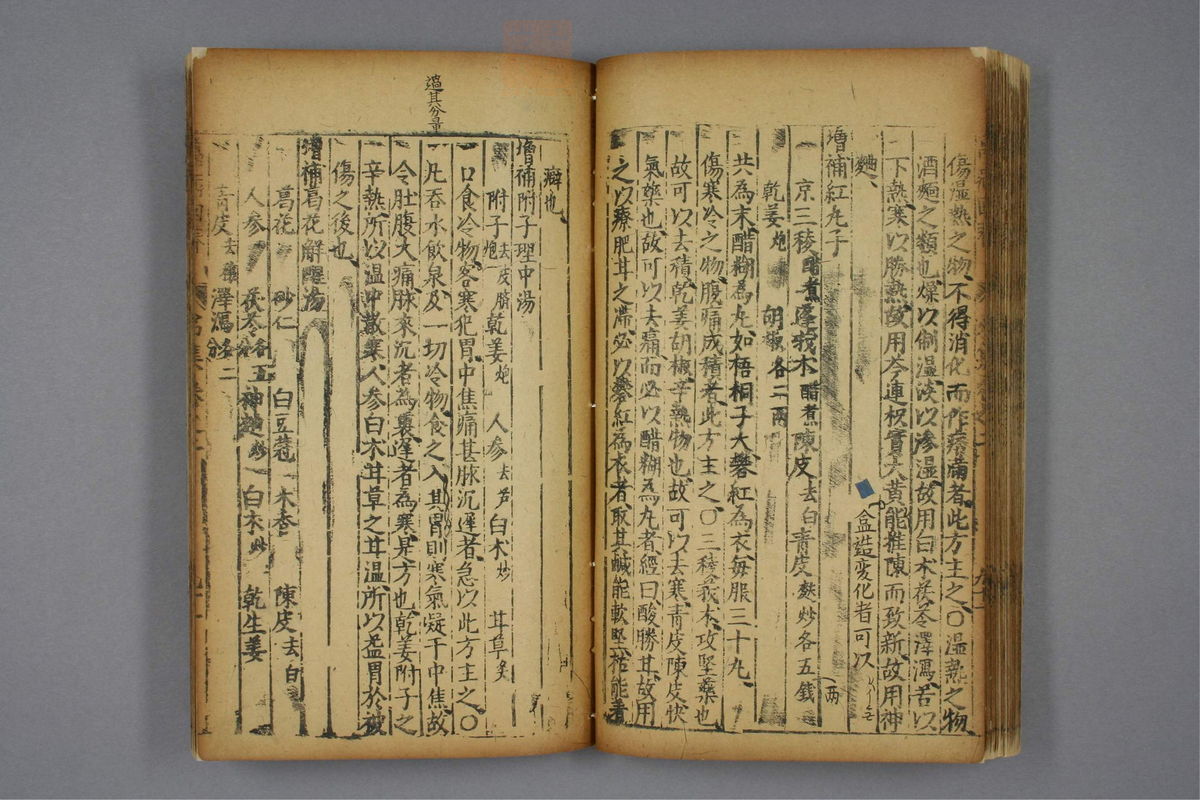 傷湿熱之物不得消化而作痞滿者此方主之〇温熱之物
酒麪之類也燥以制湿淡以滲湿故用白朮茯苓澤瀉苦以
下熱寒以勝熱故用芩連枳實大黄能推陳而致新故用神
麯 盒造変化者可以
増補紅丸子
京三稜醋煮蓬莪朮醋煮陳皮去白青皮麩炒各五錢
(両
乾姜炮 胡椒各二両
共為末醋糊為丸如梧桐子大礬紅為衣毎服三十丸
傷寒冷之物腹痛成積者此方主之〇三稜莪朮攻堅藥也
故可以去積乾姜胡椒辛熱物也故可以去寒青皮陳皮快
氣藥也故可以去痛而必以醋糊為丸者經曰酸勝甘故用
之以療肥甘之滞必以礬紅為衣者取其鹹能軟堅枯能着
癖也
増補附子理中湯
附子炮去皮臍乾姜炮 人参去芦白朮炒 甘草炙
口食冷物客寒犯胃中焦痛甚脉沉遲者急以此方主之〇
過其分量
凡吞氷飲泉及一切冷物食之入其胃則寒氣凝于中焦故
令肚腹大痛脉來沉者為裏遲者為寒是方也乾姜附子之
辛熱所以温中散寒人参白朮甘草之甘温所以益胃於被
傷之後也
増補葛花解酲湯
葛花 砂仁 白豆蔲 木香 陳皮去白
人参 茯苓各五 神麯炒 白朮炒 乾生姜
青皮去穰 澤瀉各二